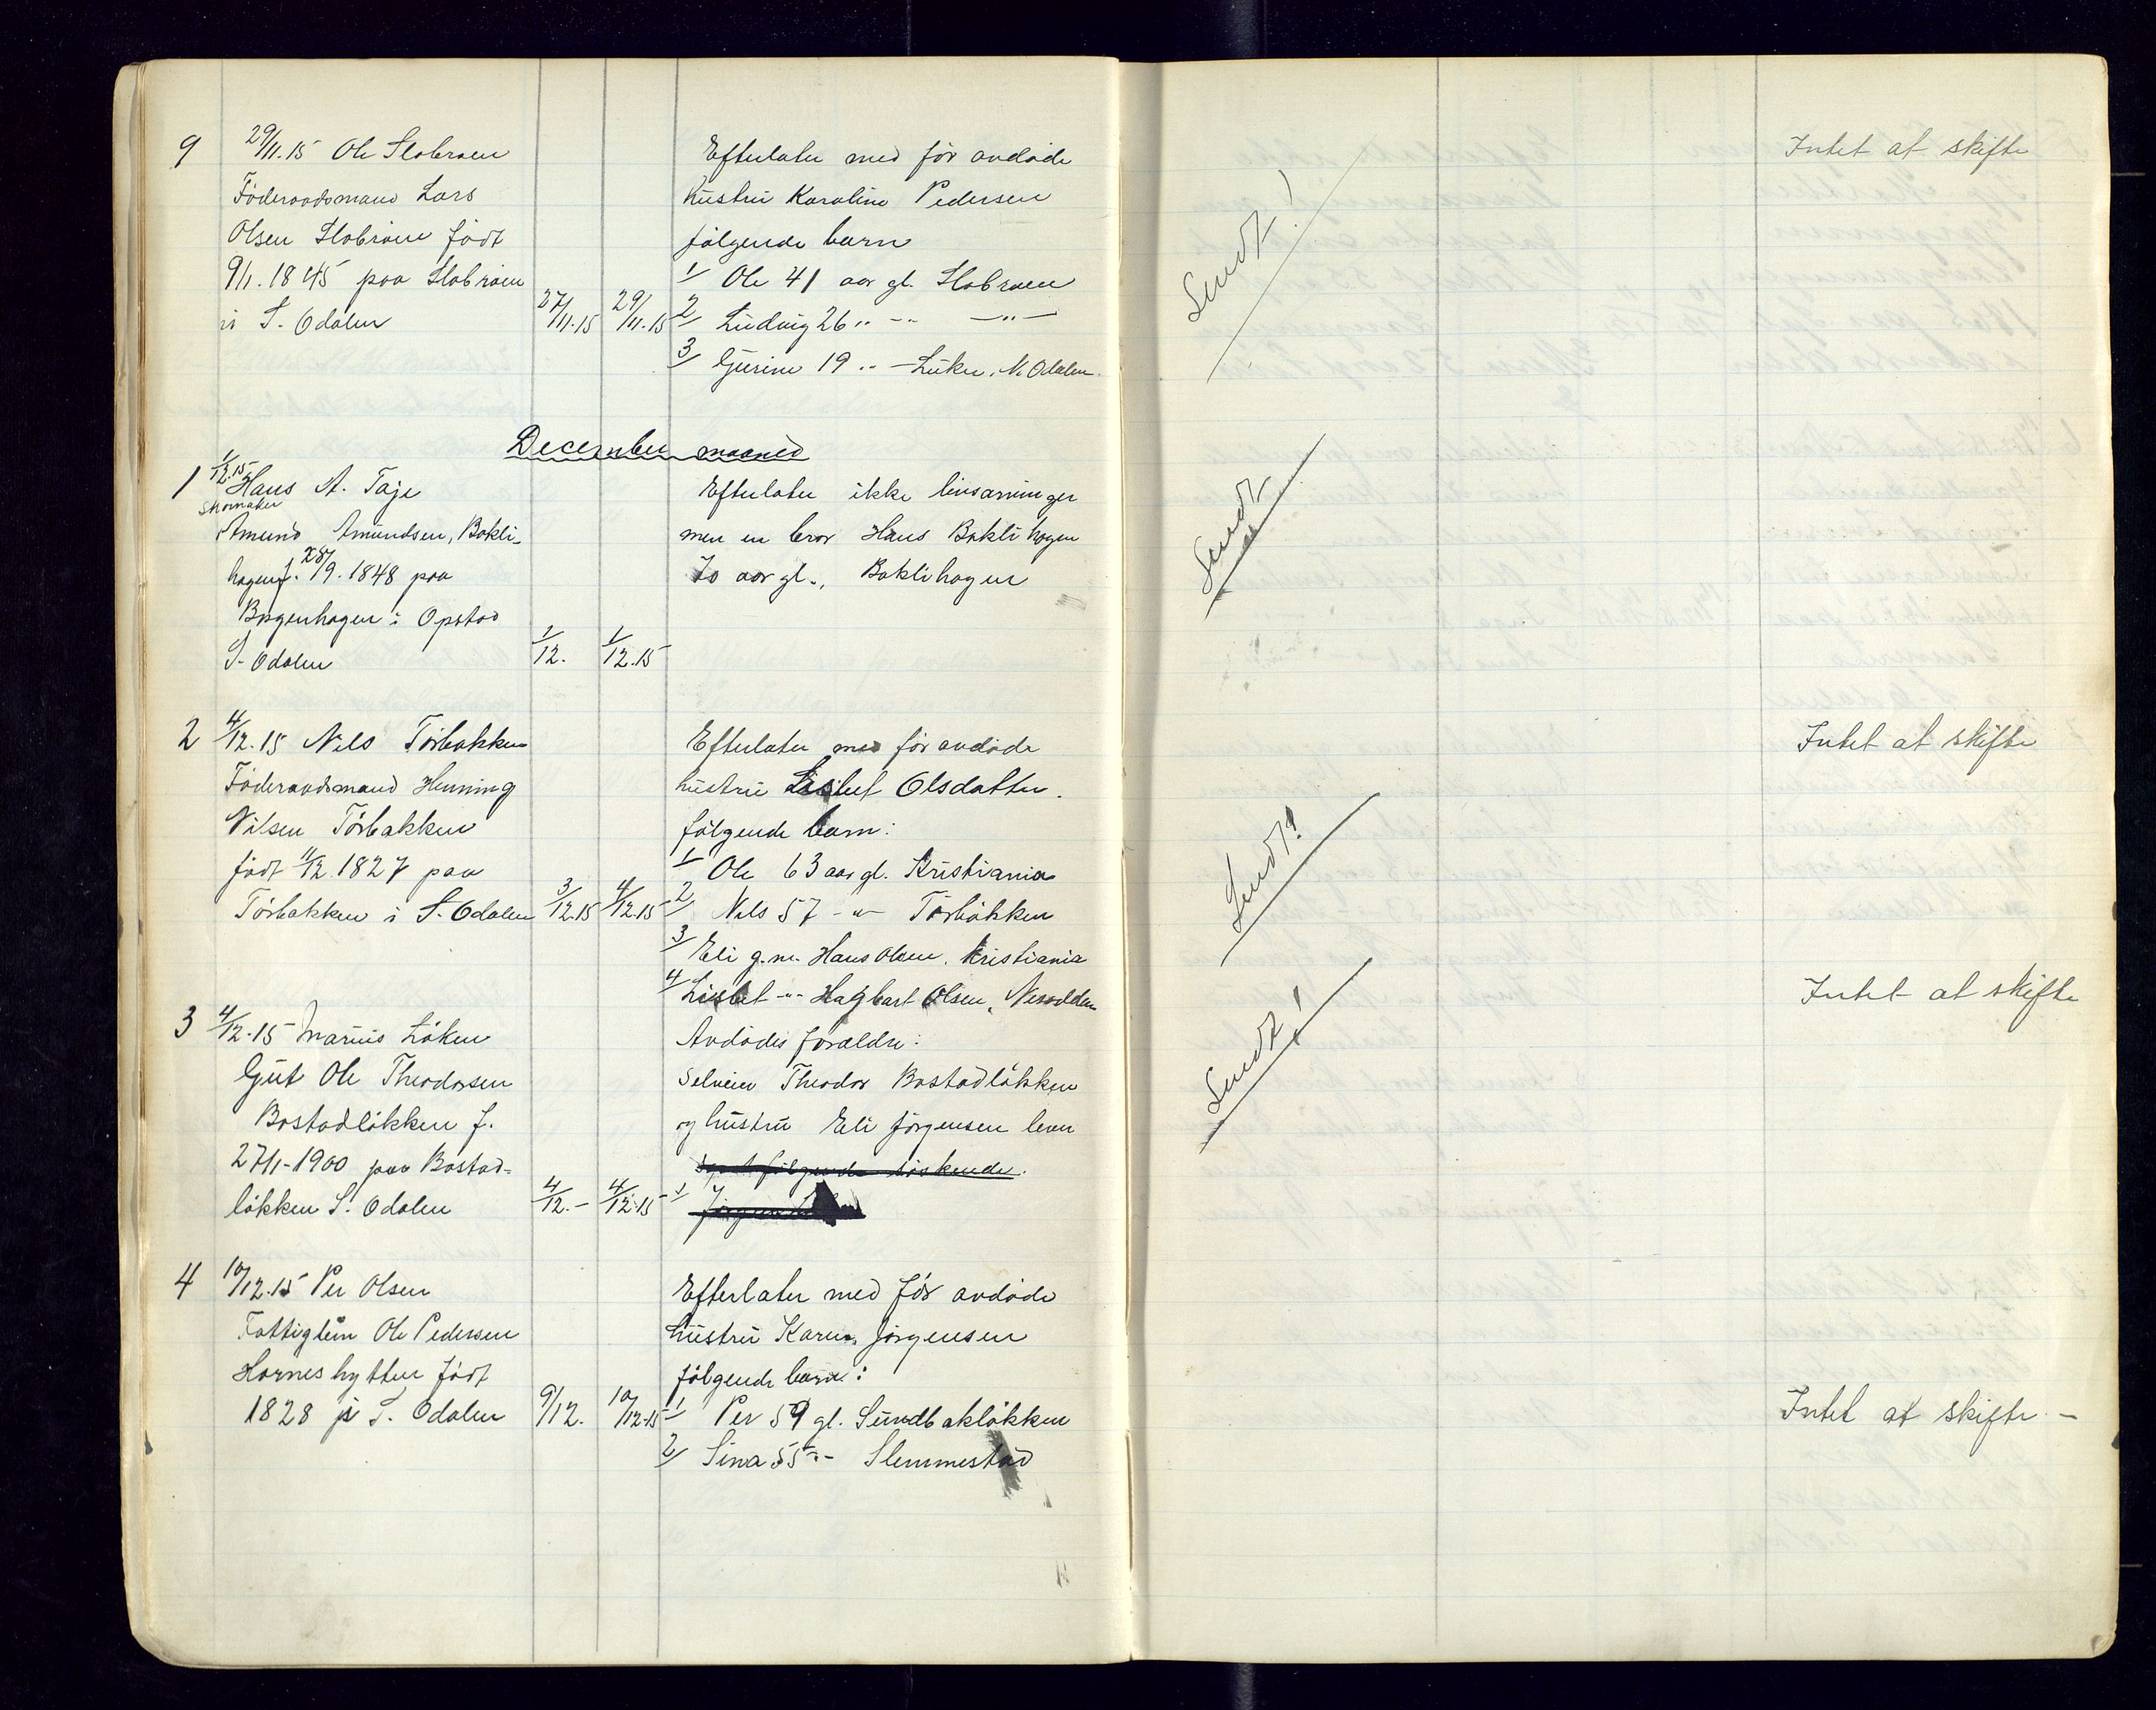 9 29/11.15 Ole Slobraen
Föderaadsmand Lars
Olsen Slobraen født
9/1. 1845 paa Slobraen
i S. Odalen 27/11.15 29/11.15
Efterlater med før avdøde
hustru Karoline Pedersen
følgende barn
1/ Ole 41 aar gl. Slobraen
2/ Ludvig 26 " -- — " —
3/ Gurine 19 " - N. Odalen
Sendt!
Intet at skifte
December maaned
1 1/12.15 Hans A. Taje
Skomaker
Amund Amundsen, Bakli-
hagen f. 28/9. 1848 paa
i Opstad
S. Odalen 1/12. 1/12.15
Efterlater ikke livsarvinger
men en bror Hans Baklihagen
70 aar gl., Baklihagen
Sendt
2 4/12.15 Nils Törbakken
Föderaadsmand Henning
Nilsen Törbakken
født 11/12. 1827 paa
Törbakken i S. Odalen 3/12.15 4/12.15
Efterlater med før avdøde
hustru Lisbet Olsdatter.
følgende barn:
1/ Ole 63 aar gl. Kristiania
2/ Nils 57 -"- Törbakken
3/ Eli g.m. Hans Olsen, Kristiania
4/ Lisbet -"- Hagbart Olsen, Nesodden
Sendt!
Intet at skifte
3 4/12.15 Marius Løken
Gut Ole Theodorsen
Bostadløkken f.
27/1-1900 paa Bostad-
løkken S. Odalen 4/12.- 4/12.15
Avdødes forældre:
Selveier Theodor Bostadløkken
og hustru Eli Jørgensen lever
samt følgende søskende.
1/ Jørgen
Sendt!
Intet at skifte
4 10/12.15 Per Olsen
Fattiglem Ole Pedersen
Horneshytten født
1828 i S. Odalen 9/12. 10/12.15
Efterlater med før avdøde
hustru Karen Jørgensen
følgende barn:
1/ Per 59 gl. Sundbakløkken
2/ Sina 55 -"- Slemmestad
Intet at skifte. -